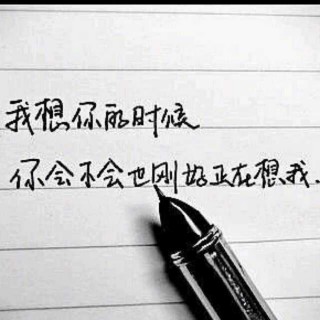 我想你的时候
你会不会也刚好正在想我.